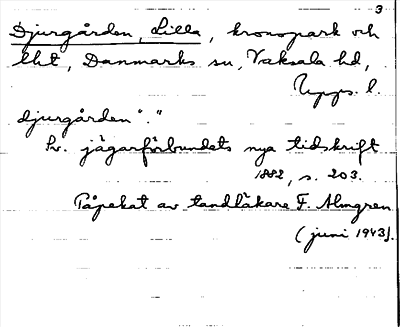 3
Djurgården, Lilla, kronopark och
lht, Danmarks sn, Vaksala hd,
Upps. l.
djurgården "."
Sv. jägarförbundets nya tidskrift
1882, s. 203.
Påpekat av tandläkare F. Almgren
(juni 1943).